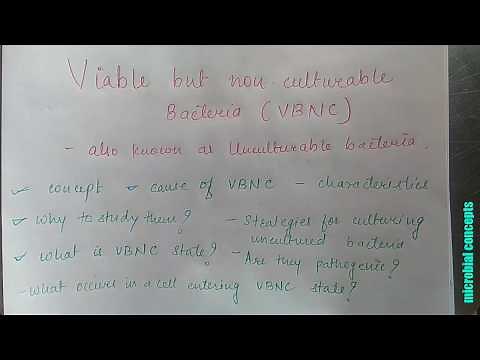 Viable but non-culturable
Bacteria (VBNC)
- also known as Unculturable bacteria.
✓ concept ✓ cause of VBNC - characteristics
✓ Why to study them? - Strategies for culturing
uncultured bacteria
✓ What is VBNC state? - Are they pathogenic?
- What occurs in a cell entering VBNC state?
microbial concepts